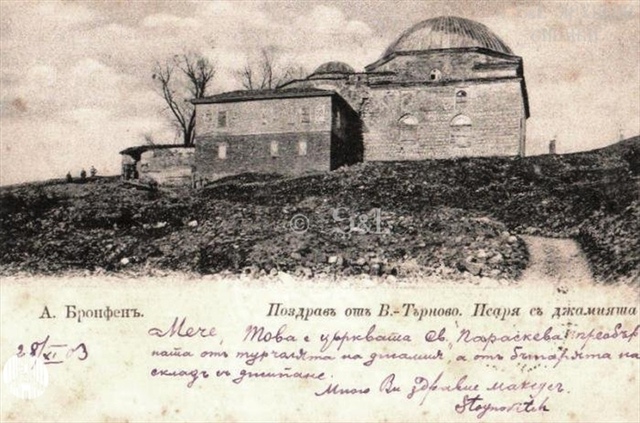 А. Бронфенъ. Поздравъ отъ В.-Търново. Псаря съ джамията
28/XI 03 Мече, Това е църквата Св. Параскева преобър
ната отъ турчалята на джамия, а отъ българята на
складъ съ джипане.
Много Ви здравие
Stoynovitch